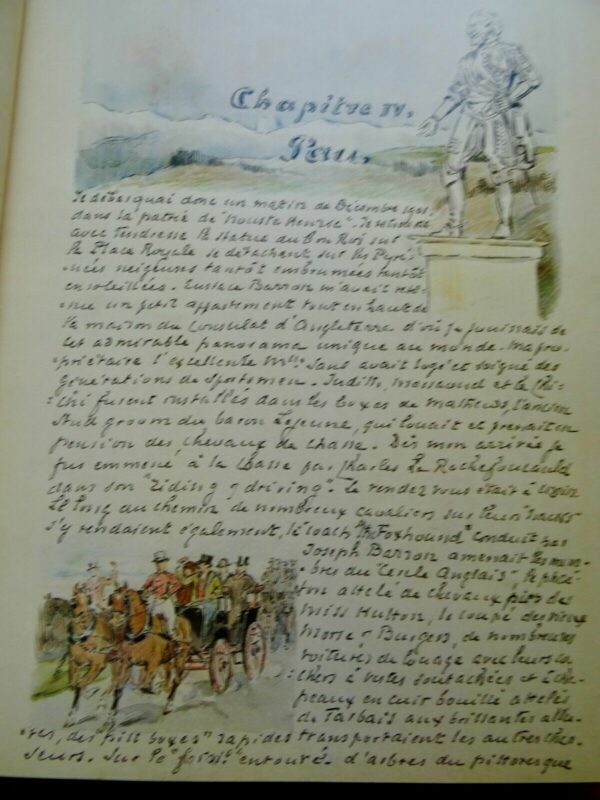 Chapitre IV.
Pau.
Je débarquai donc un matin de Décembre
dans la patrie de "Nouste Henric". Je
avec tendresse la statue du Bon Roi sur
la Place Royale se détachant sur les Pyré-
nées neigeuses tantôt embrumées tantôt
ensoleillées. Eustace Barron m'avait rete-
nue un petit appartement tout en haut de
la maison du Consulat d'Angleterre. d'où je jouissais de
cet admirable panorama unique au monde. Ma pro-
priétaire l'excellente Mlle Sans avait logé et soigné des
générations de Sportsmen. Judith, Messaoud et le
furent installés dans les boxes de Mathews, l'ancien
Stud groom du baron Lejeune, qui louait et prenait en
pension des chevaux de chasse. Dès mon arrivée je
fus emmené à la chasse par Charles de La Rochefoucauld
dans son "riding & driving". Le rendez vous était à
Le long du chemin de nombreux cavaliers sur leurs hacks
s'y rendaient également, le coach "the Foxhound" conduit par
Joseph Barron amenait les mem-
bres du "Cercle Anglais", le phaé-
ton attelé de chevaux pies des
Miss Hutton, le coupé des vieux
Morse & Burgers, de nombreuses
voitures de louage avec leurs co-
chers à vestes soutachées et à cha-
peaux en cuir bouilli attelés
de Tarbais aux brillantes allu-
res, des "pill boxes" rapides transportaient les autres chas-
seurs. Sur le entouré d'arbres du pittoresque